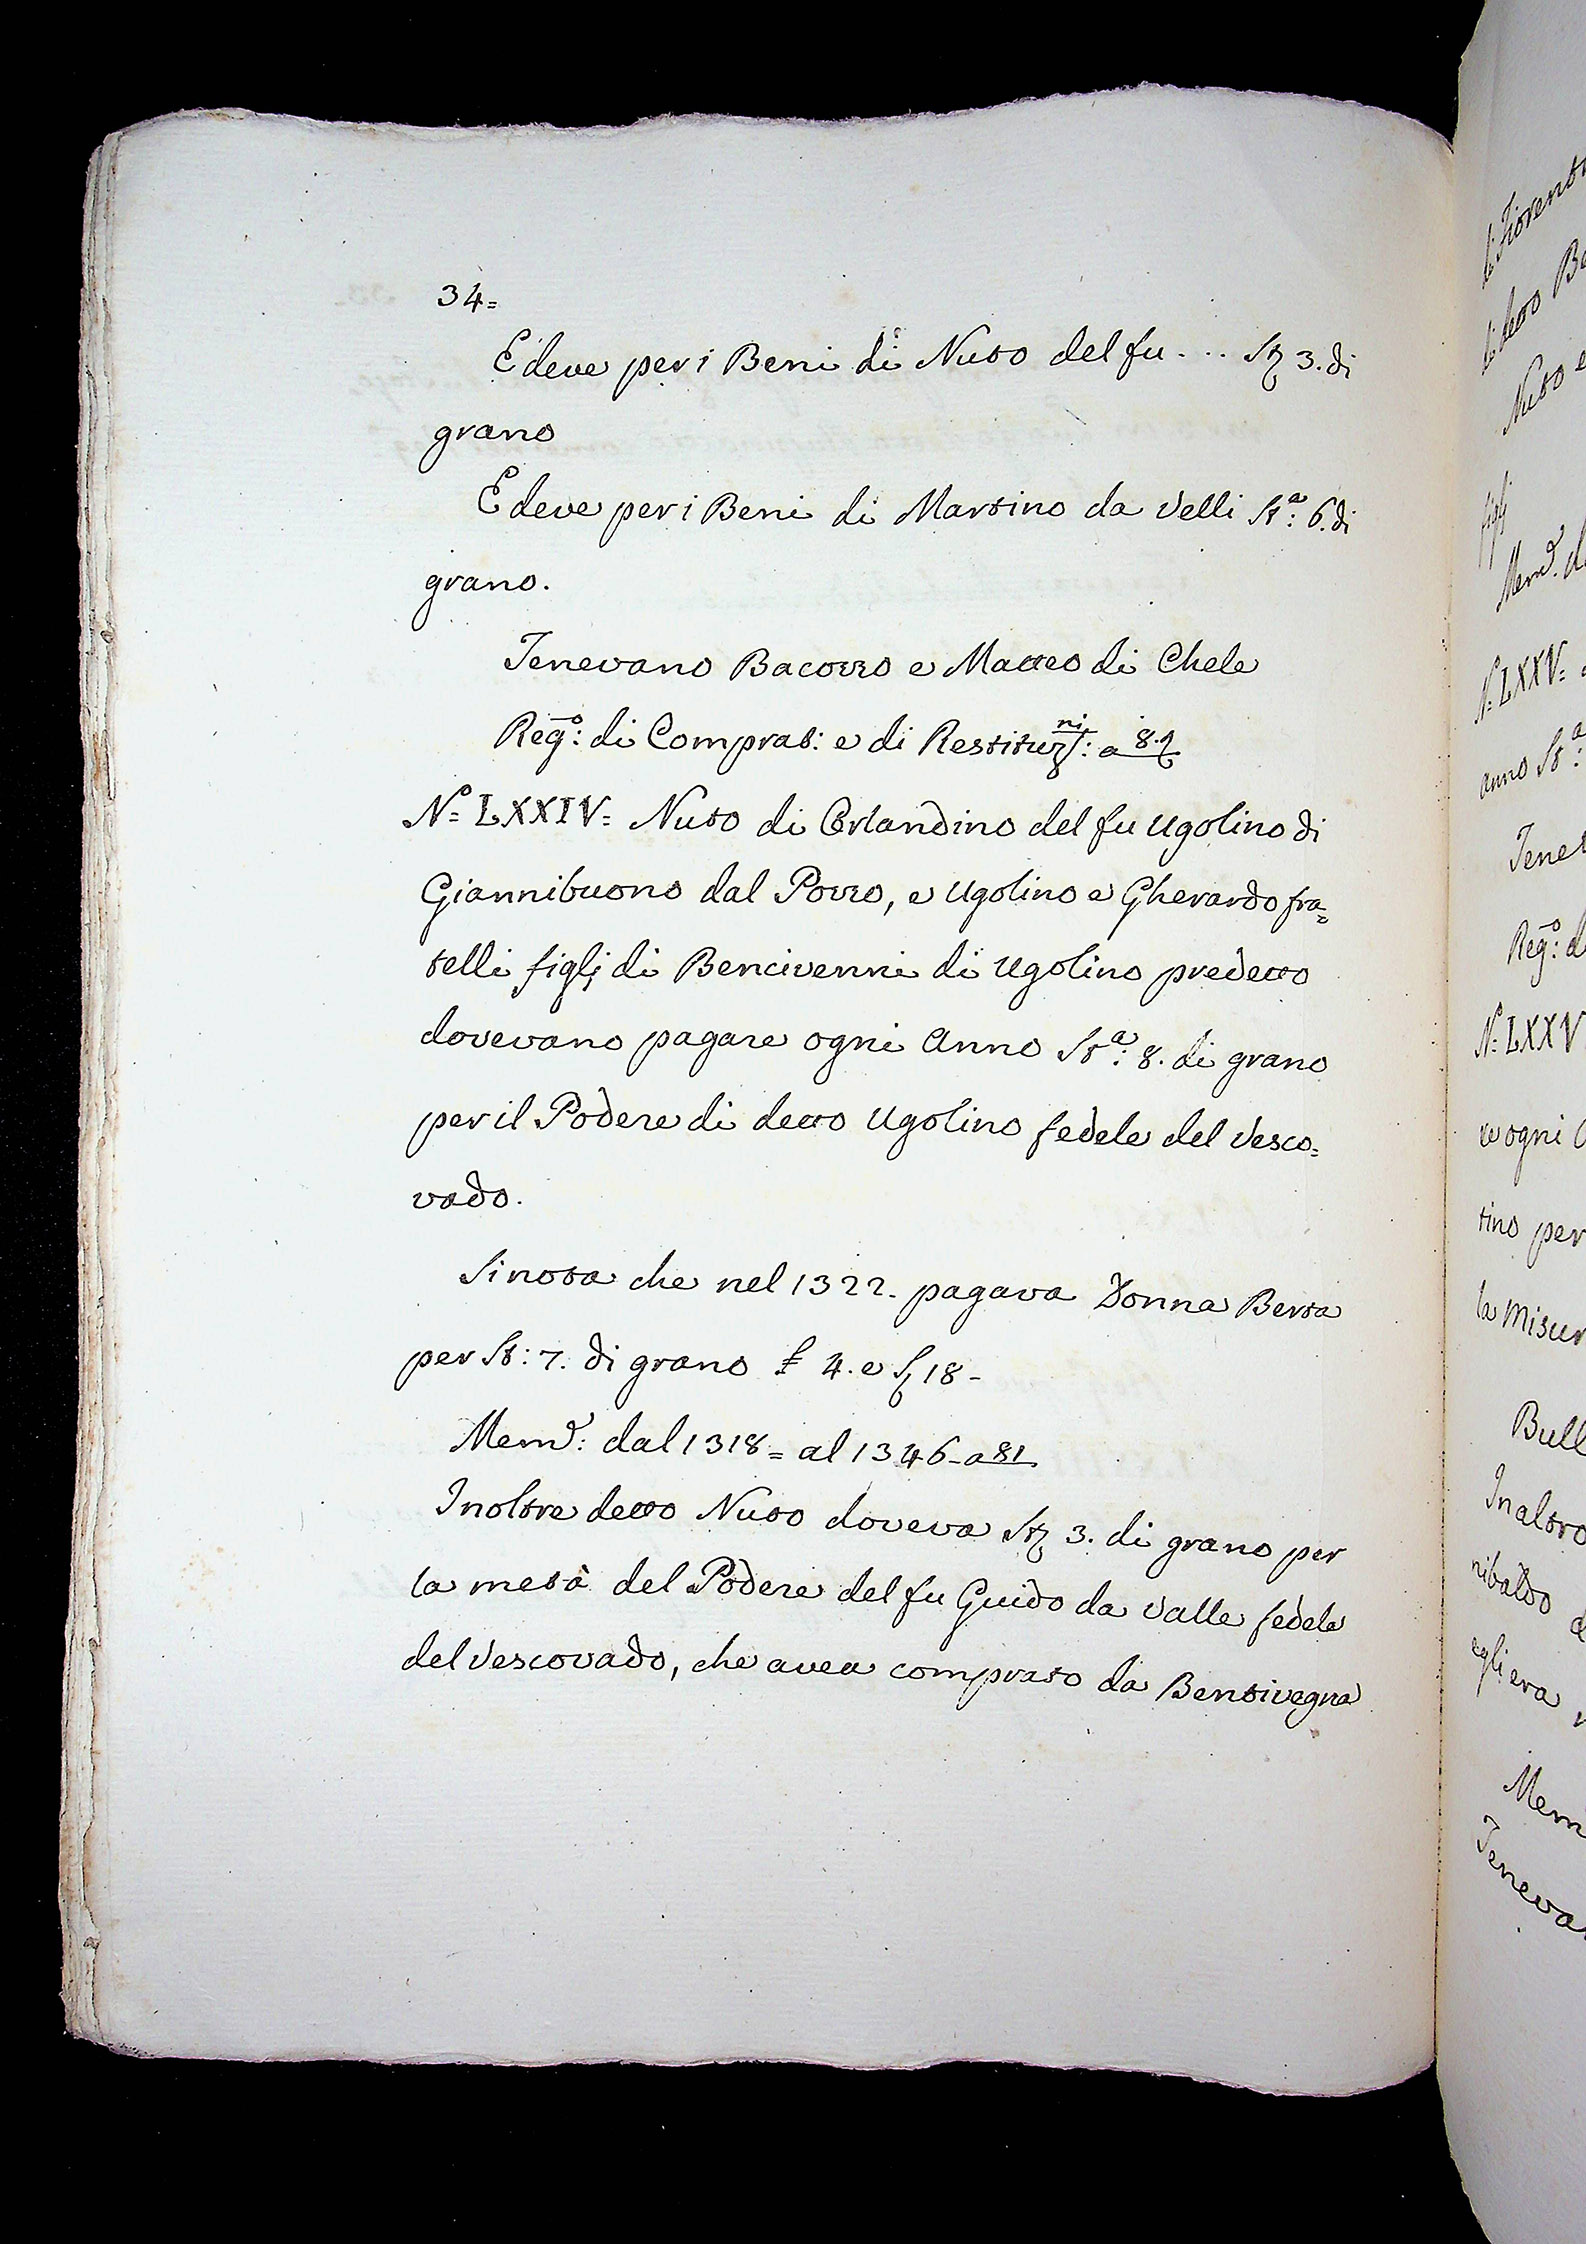 34=
E deve per i Beni di Nuto del fu .... St. 3. di
grano
E deve per i Beni di Martino da Velli St.a 6. di
grano.
Tenevano Bacorro e Matteo di Chele
Reg.o: di Comprat: e di Restituz.ni: a 8.
N.o= LXXIV= Nuto di Orlandino del fu Ugolino di
Giannibuono dal Porro, e Ugolino e Gherardo fra=
telli figlj di Bencivenni di Ugolino predetto
dovevano pagare ogni Anno St.a: 8. di grano
per il Podere di detto Ugolino fedele del Vesco=
vado.
Si nota che nel 1322. pagava Donna Berta
per St: 7. di grano £ 4. e S 18-
Mem.e: dal 1318= al 1346- a 81
Inoltre detto Nuto doveva St. 3. di grano per
la metà del Podere del fu Guido da Valle fedele
del Vescovado, che avea comprato da Bentivegna
di Fiorent
di detto B
Nuto e
figlj
Mem.e. d
N.o= LXXV=
anno St.a:
Tene
Reg.o: d
N.o= LXXV
re ogni
tino per
la misur
Bull
In altro
nibaldo
egli era
Mem
Teneva